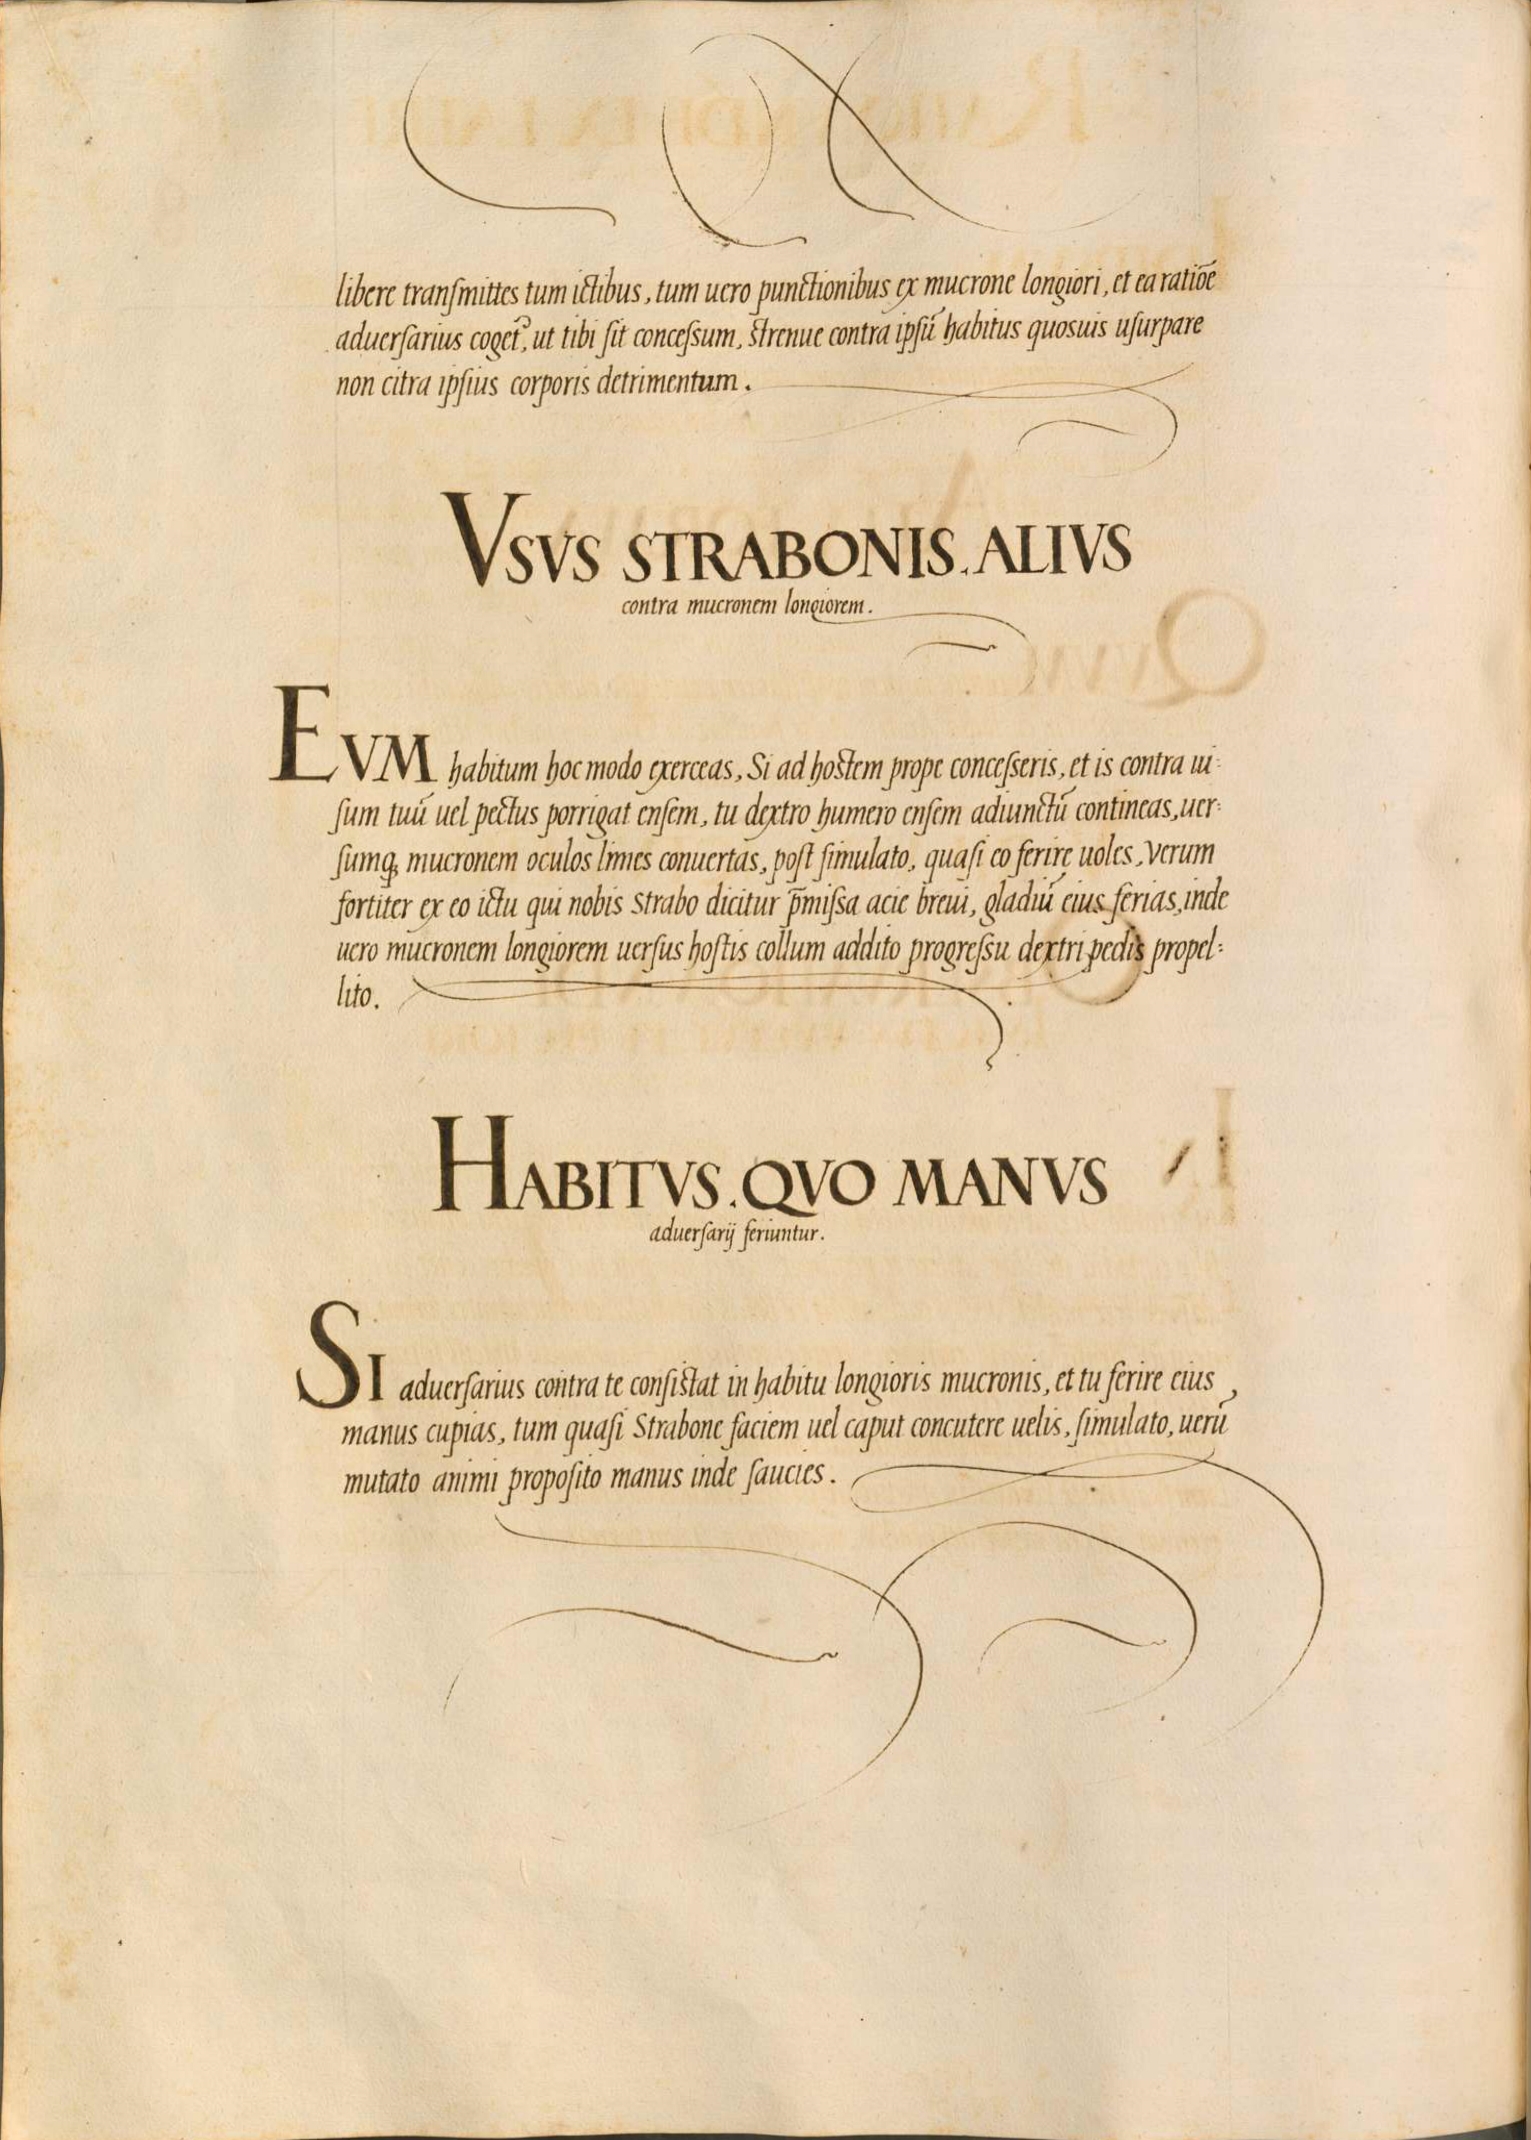 libere tranſmittes tum ictibus, tum uero punctionibus ex mucrone longiori, et ea ratiōe
aduerſarius coget᷑, ut tibi ſit conceſsum, strenue contra ipſū habitus quosuis uſurpare
non citra ipſius corporis detrimentum.
VSVS STRABONIS. ALIVS
contra mucronem longiorem.
EVM habitum hoc modo exerceas, Si ad hostem prope conceſseris, et is contra ui:
ſum tuū uel pectus porrigat enſem, tu dextro humero enſem adiunctū contineas, uer:
ſumq; mucronem oculos limes conuertas, poſt ſimulato, quaſi eo ferire uoles, Verum
fortiter ex eo ictu qui nobis Strabo dicitur p̄miſsa acie breui, gladiū eius ferias, inde
uero mucronem longiorem uerſus hoſtis collum addito progreſsu dextri pedis propel:
lito.
HABITVS. QVO MANVS
aduerſarij feriuntur.
SI aduerſarius contra te conſistat in habitu longioris mucronis, et tu ferire eius,
manus cupias, tum quaſi Strabone faciem uel caput concutere uelis, ſimulato, uerū
mutato animi propoſito manus inde ſaucies.